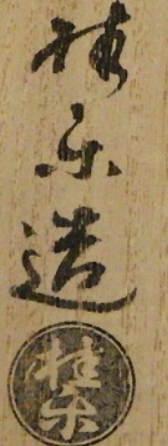 桂楽造
桂楽